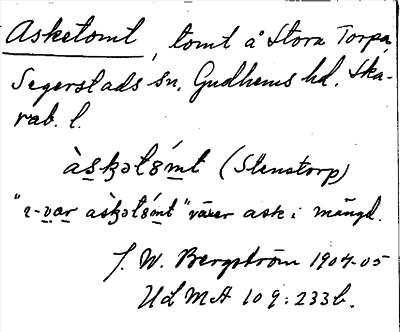 Asketomt, tomt å Stora Torpa,
Segerstads sn, Gudhems hd, Ska-
rab. l.
àsꞣətsǻmt (Stenstorp)
växer ask i mängd.
J. W. Bergström 1904-05
ULMA 109:233b.